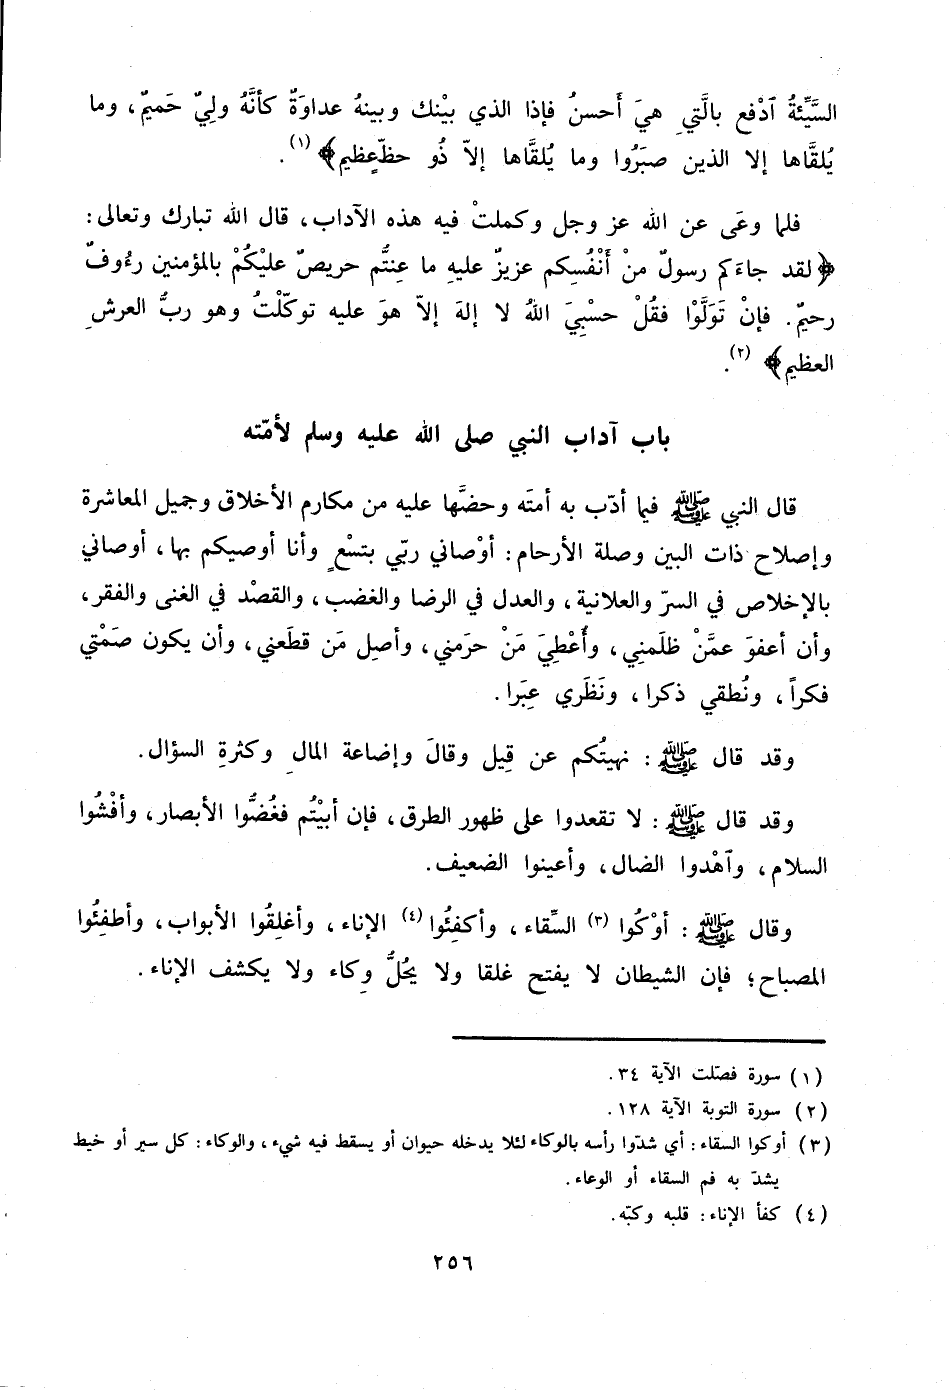 السَّيِّئةُ ٱدْفع بالَّتيِ هيَ أَحسنُ فإذا الذي بيْنك وبينهُ عداوَةٌ كأنَّهُ وليّ حَميمٌ، وما
يُلقَّاها إلا الذين صبَرُوا وما يُلقَّاها إلاّ ذُو حظّ عٍظيم﴾ (١).
فلما وعَى عن الله عز وجل وكملتْ فيه هذه الآداب، قال الله تبارك وتعالى:
﴿لقد جاءَكم رسولٌ منْ أَنْفُسِكم عزيزٌ عليهِ ما عنِتُّم حريصٌ عليْكُمْ بالمؤمنين رءُوفٌ
رحيمٌ. فإنْ تَوَلَّوْا فقُلْ حسْبِيَ اللهُ لا إلهَ إلاّ هوَ عليه توكّلْتُ وهو ربُّ العرشِ
العظيم﴾ (٢).
باب آداب النبي صلى الله عليه وسلم لأمّته
قال النبي ﷺ فيما أدّب به أمتَه وحضَّها عليه من مكارم الأخلاق وجميل المعاشرة
وإصلاح ذات البين وصلة الأرحام: أوْصاني ربّي بتسْعٍ وأنا أوصيكم بها، أوصاني
بالإخلاص في السرّ والعلانية، والعدل في الرضا والغضب، والقصْد في الغنى والفقر،
وأن أعفوَ عمَّنْ ظلَمنِي، وأُعْطِيَ مَنْ حرَمني، وأصِل مَن قطَعني، وأن يكون صَمْتي
فكراً، ونُطقي ذكرا، ونَظَري عِبَرا.
وقد قال ﷺ: نهيتُكم عن قِيل وقالَ وإضاعة المالِ وكثرةِ السؤال.
وقد قال ﷺ: لا تقعدوا على ظهور الطرق، فإن أبيْتُم فغُضُّوا الأبصار، وأفْشُوا
السلام، وٱهْدوا الضال، وأعينوا الضعيف.
وقال ﷺ: أوْكُوا (٣) السِّقاء، وأكفِئُوا (٤) الإناء، وأغلِقُوا الأبواب، وأطفِئُوا
المصباح؛ فإن الشيطان لا يفتح غلقا ولا يحُلُّ وِكاء ولا يكشف الإناء.
(١) سورة فصّلت الآية ٣٤.
(٢) سورة التوبة الآية ١٢٨.
(٣) أوكوا السقاء: أي شدّوا رأسه بالوكاء لئلا يدخله حيوان أو يسقط فيه شيء، والوكاء: كل سير أو خيط
يشدّ به فم السقاء أو الوعاء.
(٤) كفأ الإناء: قلبه وكبّه.
٢٥٦